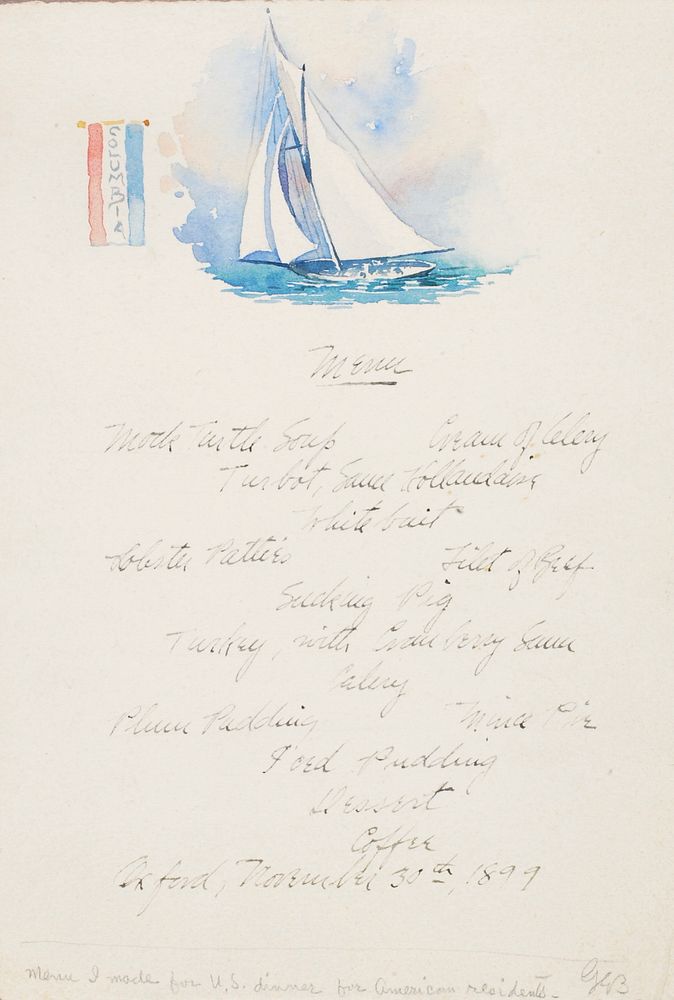 COLUMBIA
Menu
Mock Turtle Soup Cream of Celery
Turbot, Sauce Hollandaise
Whitebait
Lobster Patties Filet of Beef
Sucking Pig
Turkey, with Cranberry Sauce
Celery
Plum Pudding Mince Pie
Iced Pudding
Dessert
Coffee
Oxford, November 30th, 1899
Menu I made for U.S. dinner for American residents-